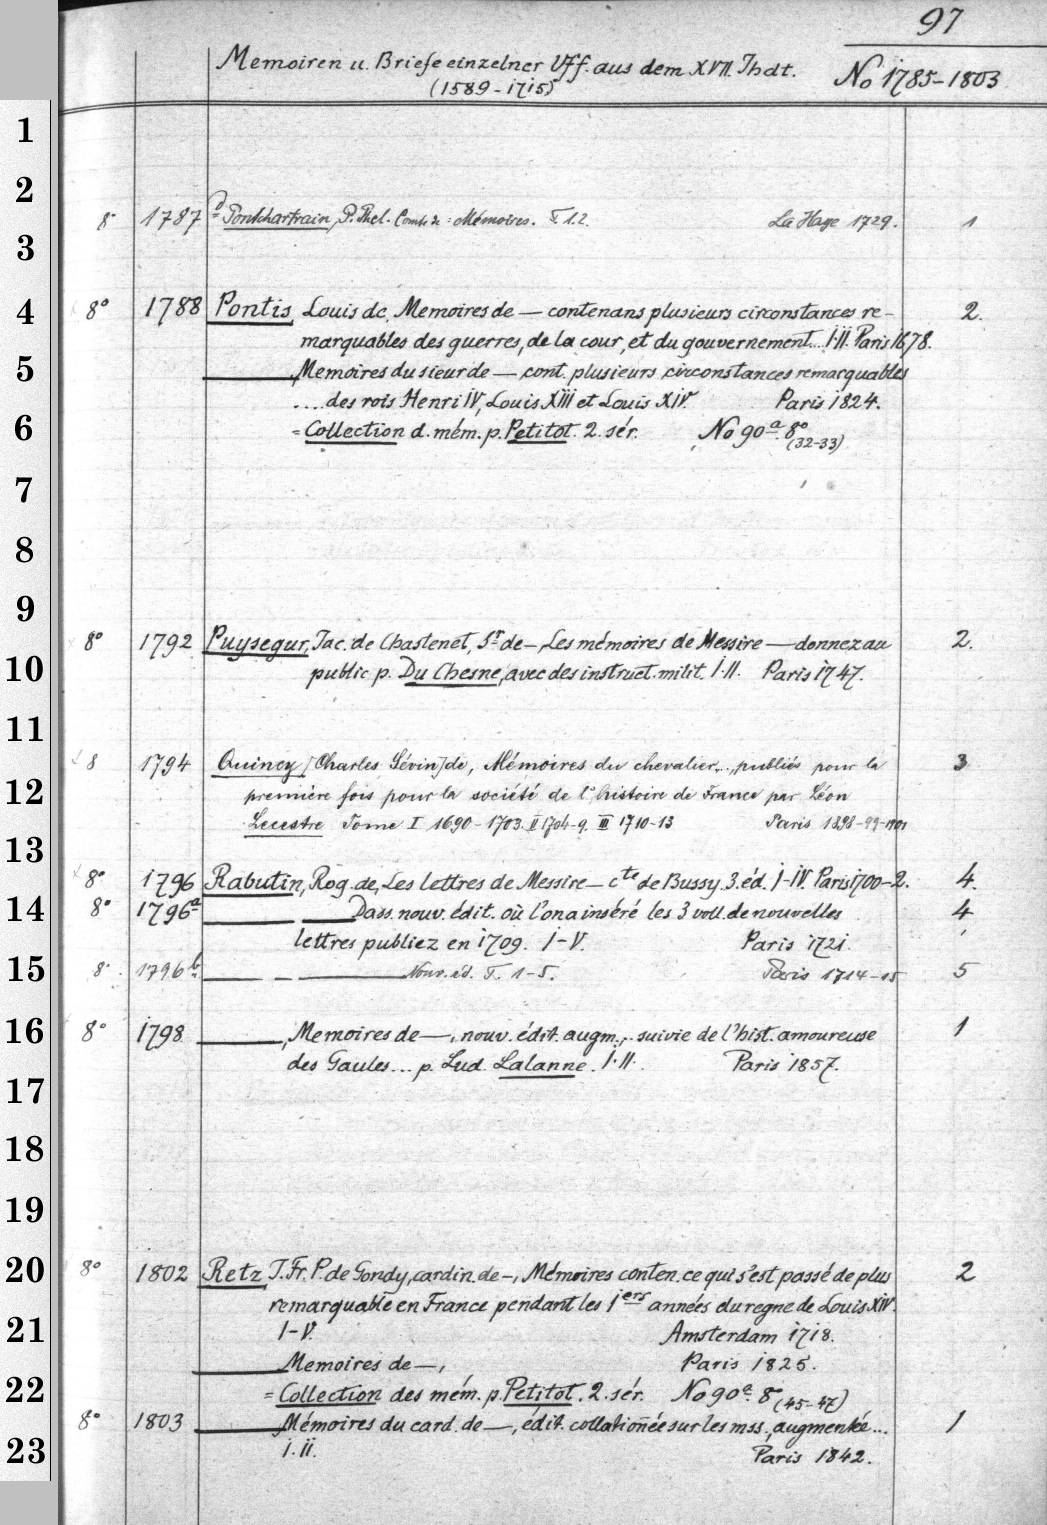 97
Memoiren u. Briefe einzelner Vff. aus dem XVII. Jhdt.
(1589-1715)
No 1785-1803
1
2
8° 1787 Pontchartrain, P. Phel. Comte de: Mémoires. T. 1.2. La Haye 1729. 1
3
4
8° 1788 Pontis, Louis de, Memoires de — contenans plusieurs circonstances re- 2.
marquables des guerres, de la cour, et du gouvernement... I.II. Paris 1678.
5
——, Memoires du sieur de — cont. plusieurs circonstances remarquables
.... des rois Henri IV, Louis XIII et Louis XIV. Paris 1824.
6
= Collection d. mém. p. Petitot. 2. sér. No 90a. 8° (32-33)
7
8
9
8° 1792 Puysegur, Jac. de Chastenet, Sr de —, Les mémoires de Messire — donnez au 2.
10
public p. Du Chesne, avec des instruct. milit. I.II. Paris 1747.
11
8 1794 Quincy [Charles Sévin] de, Mémoires du chevalier..., publiés pour la 3
12
première fois pour la société de l'histoire de France par Léon
Lecestre Tome I 1690-1703. II 1704-9. III 1710-13 Paris 1898-99-1901
13
8° 1796 Rabutin, Rog. de, Les lettres de Messire — cte de Bussy. 3. éd. I-IV. Paris 1700-2. 4.
14
8° 1796a —— —— Dass. nouv. édit. où l'on a inséré les 3 voll. de nouvelles 4
lettres publiez en 1709. I-V. Paris 1721.
15
8° 1796b —— — —— Nouv. éd. T. 1-5. Paris 1714-15 5
16
8° 1798 ——, Memoires de —, nouv. édit. augm... suivie de l'hist. amoureuse 1
des Gaules... p. Lud. Lalanne. I.II. Paris 1857.
17
18
19
20
8° 1802 Retz, J. Fr. P. de Gondy, cardin. de —, Mémoires conten. ce qui s'est passé de plus 2
remarquable en France pendant les 1ers années du regne de Louis XIV.
21
I-V. Amsterdam 1718.
—— Memoires de —, Paris 1825.
22
= Collection des mém. p. Petitot. 2. sér. No 90a. 8° (45-47)
8° 1803 —— Mémoires du card. de —, édit. collationée sur les mss., augmentée... 1
23
I.II. Paris 1842.